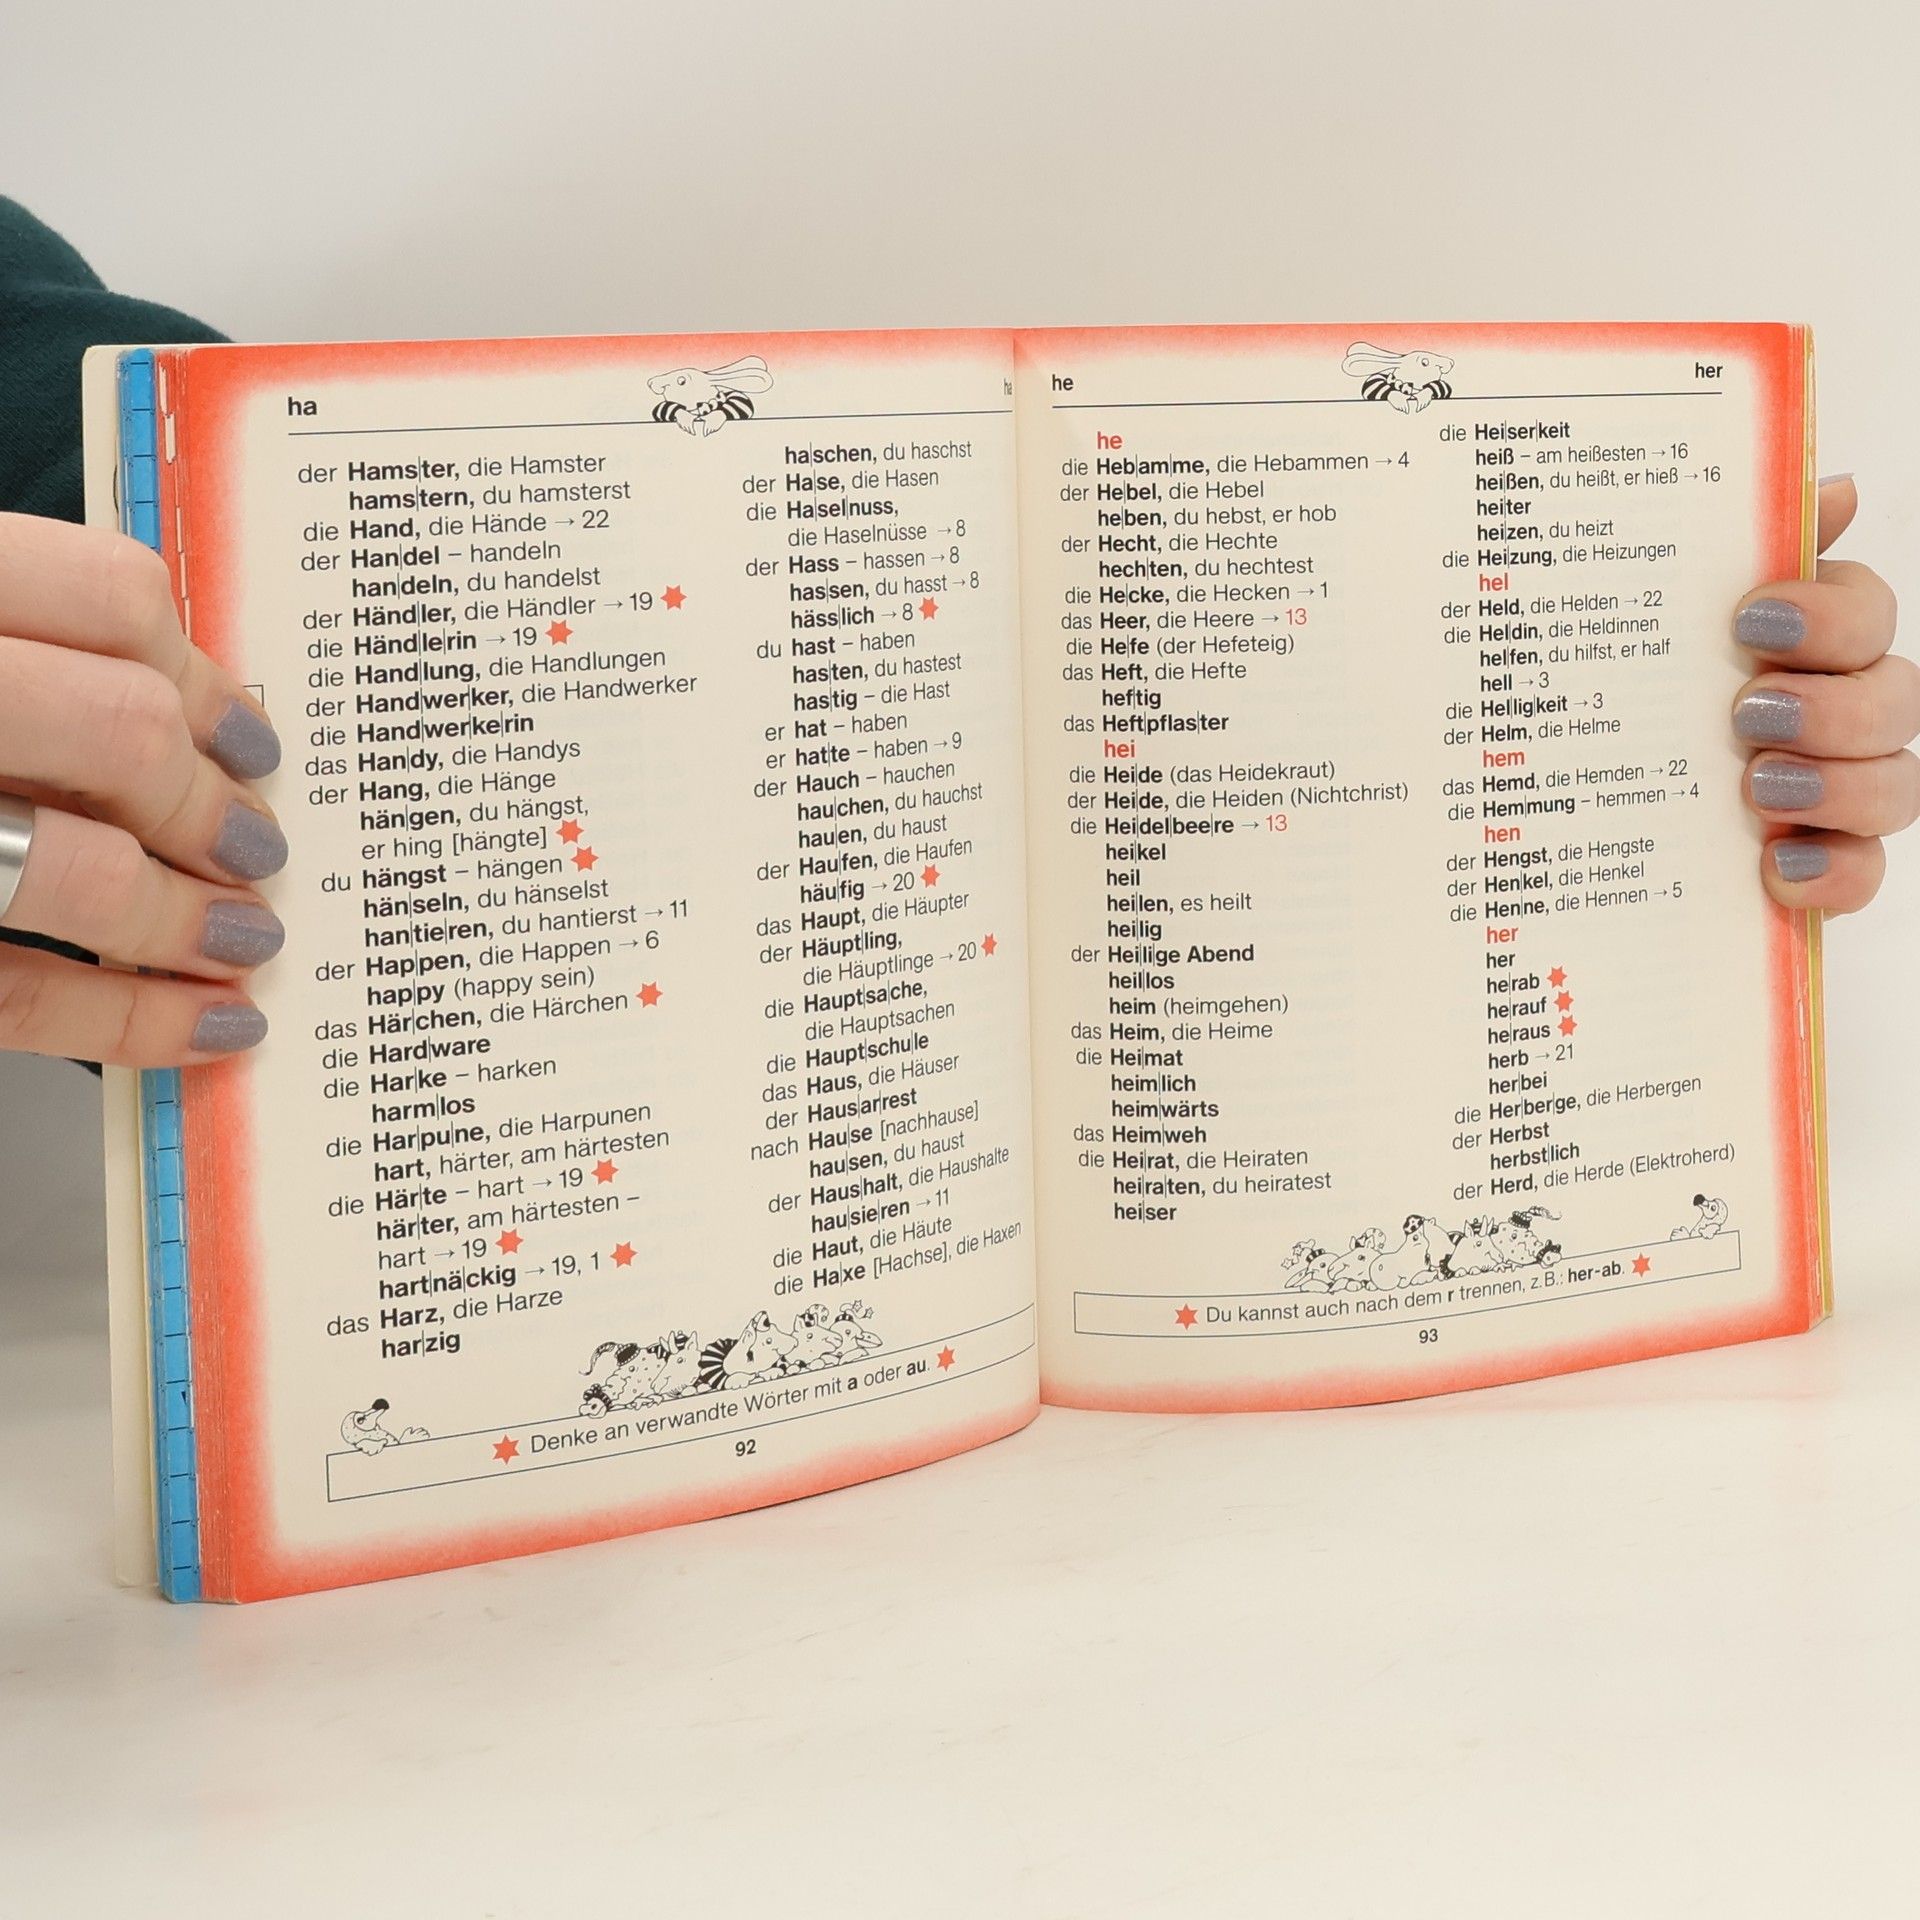 ha
ha
der Hams|ter, die Hamster
hams|tern, du hamsterst
die Hand, die Hände → 22
der Han|del – handeln
han|deln, du handelst
der Händ|ler, die Händler → 19
die Händ|le|rin → 19
die Hand|lung, die Handlungen
der Hand|wer|ker, die Handwerker
die Hand|wer|ke|rin
das Han|dy, die Handys
der Hang, die Hänge
hän|gen, du hängst,
er hing [hängte]
du hängst – hängen
hän|seln, du hänselst
han|tie|ren, du hantierst → 11
der Hap|pen, die Happen → 6
hap|py (happy sein)
das Här|chen, die Härchen
die Hard|ware
die Har|ke – harken
harm|los
die Har|pu|ne, die Harpunen
hart, härter, am härtesten
die Här|te – hart → 19
här|ter, am härtesten –
hart → 19
hart|nä|ckig → 19, 1
das Harz, die Harze
har|zig
ha|schen, du haschst
der Ha|se, die Hasen
die Ha|sel|nuss,
die Haselnüsse → 8
der Hass – hassen → 8
has|sen, du hasst → 8
häss|lich → 8
du hast – haben
has|ten, du hastest
has|tig – die Hast
er hat – haben
er hat|te – haben → 9
der Hauch – hauchen
hau|chen, du hauchst
hau|en, du haust
der Hau|fen, die Haufen
häu|fig → 20
das Haupt, die Häupter
der Häupt|ling,
die Häuptlinge → 20
die Haupt|sa|che,
die Hauptsachen
die Haupt|schu|le
das Haus, die Häuser
der Haus|ar|rest
nach Hau|se [nachhause]
hau|sen, du haust
der Haus|halt, die Haushalte
hau|sie|ren → 11
die Haut, die Häute
die Ha|xe [Hachse], die Haxen
Denke an verwandte Wörter mit a oder au.
92
he
her
he
die Heb|am|me, die Hebammen → 4
der He|bel, die Hebel
he|ben, du hebst, er hob
der Hecht, die Hechte
hech|ten, du hechtest
die He|cke, die Hecken → 1
das Heer, die Heere → 13
die He|fe (der Hefeteig)
das Heft, die Hefte
hef|tig
das Heft|pflas|ter
hei
die Hei|de (das Heidekraut)
der Hei|de, die Heiden (Nichtchrist)
die Hei|del|bee|re → 13
hei|kel
heil
hei|len, es heilt
hei|lig
der Hei|li|ge Abend
heil|los
heim (heimgehen)
das Heim, die Heime
die Hei|mat
heim|lich
heim|wärts
das Heim|weh
die Hei|rat, die Heiraten
hei|ra|ten, du heiratest
hei|ser
die Hei|ser|keit
heiß – am heißesten → 16
hei|ßen, du heißt, er hieß → 16
hei|ter
hei|zen, du heizt
die Hei|zung, die Heizungen
hel
der Held, die Helden → 22
die Hel|din, die Heldinnen
hel|fen, du hilfst, er half
hell → 3
die Hel|lig|keit → 3
der Helm, die Helme
hem
das Hemd, die Hemden → 22
die Hem|mung – hemmen → 4
hen
der Hengst, die Hengste
der Hen|kel, die Henkel
die Hen|ne, die Hennen → 5
her
her
he|rab
he|rauf
he|raus
herb → 21
her|bei
die Her|ber|ge, die Herbergen
der Herbst
herbst|lich
der Herd, die Herde (Elektroherd)
Du kannst auch nach dem r trennen, z.B.: her-ab.
93